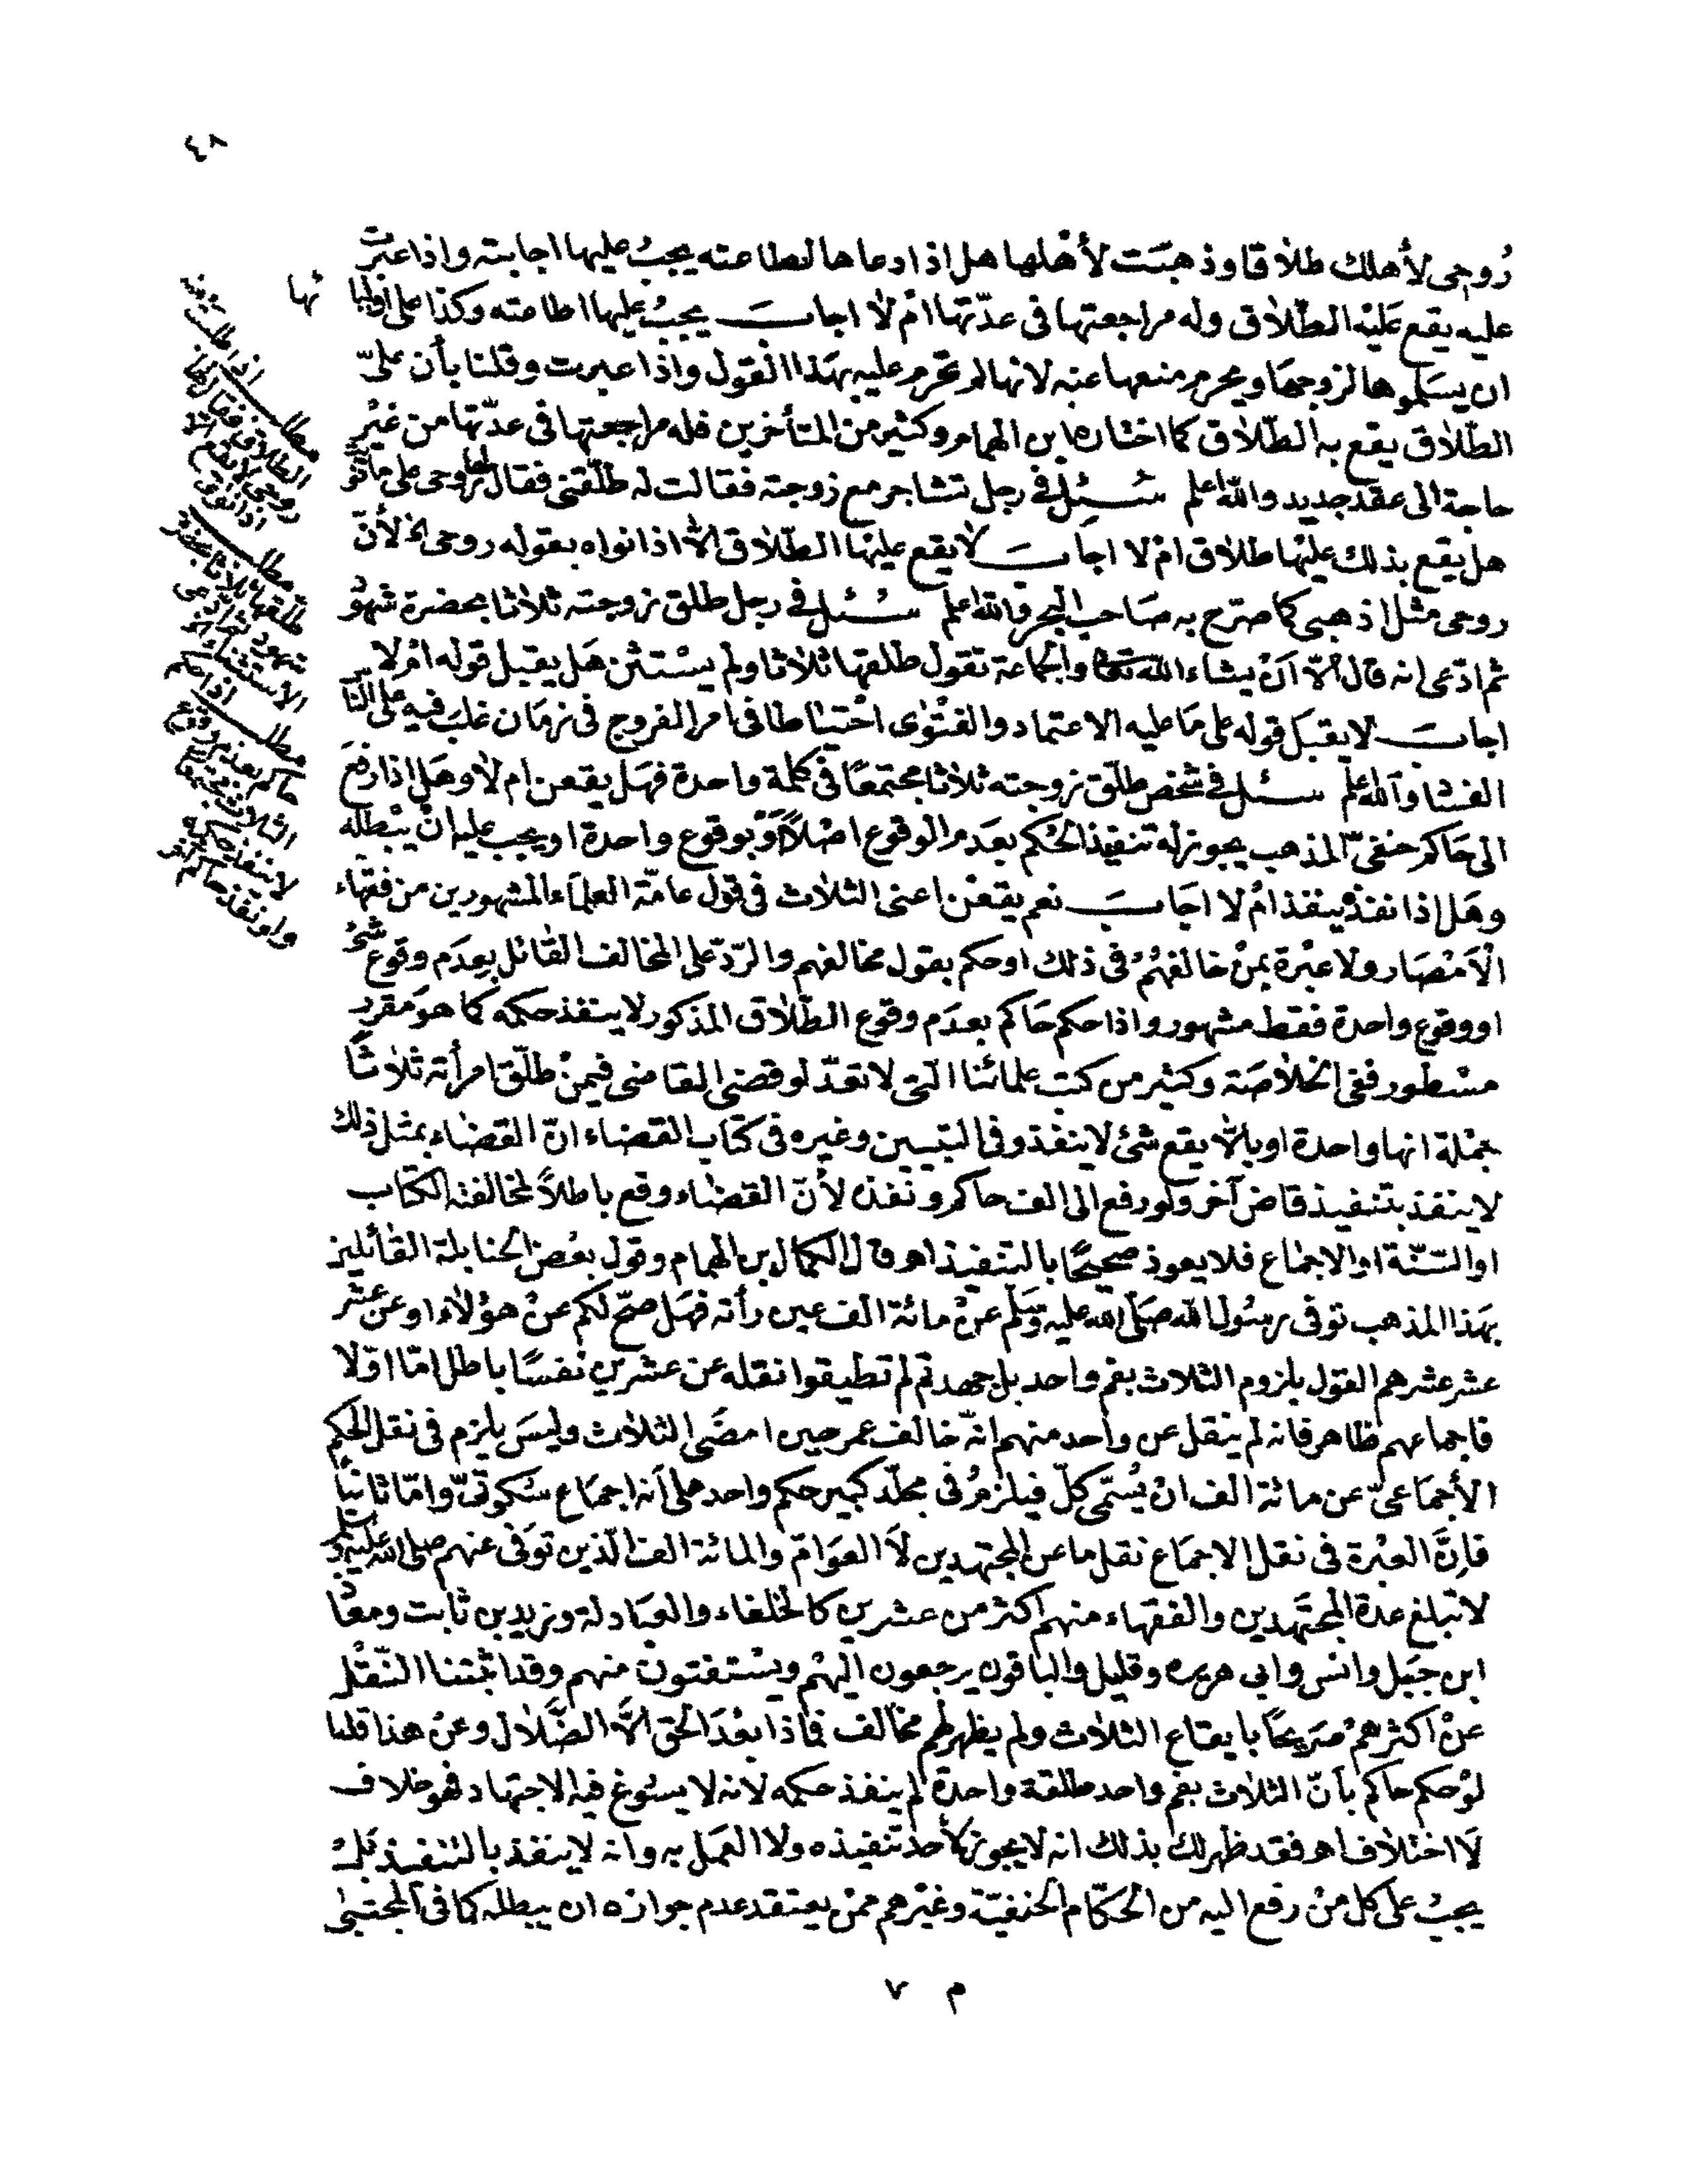 ٤٨
رُوحى لأهلك طلاقا وذهبَت لأهْلها هل اذا دعاها لطاعته يجبُ عليها اجابته واذا عبرت
عليه يقع عَليْه الطّلاق وله مراجعتها فى عدّتها امْ لا اجابَ يجبُ عليها اطاعته وكذا على اوليا
ئها
ان يسَلموها لزوجهَا ويحرم منعها عنه لانها لم تحرم عليه بهَذا القول واذا عبرت وقلنا بأن علىّ
الطّلاق يقع به الطّلاق كما اختاره ابن الهمام وكثير من المتأخرين فله مراجعتها فى عدّتها من غيْر
حاجة الى عقد جديد والله اعلم سُئِل فى رجل تشاجر مع زوجته فقالت له طلّقنى فقال لها روحى على
هل يقع بذلك عليْها طلاق امْ لا اجابَ لا يقع عليهَا الطّلاق الّا اذا نواه بقوله روحى الخ لأنّ
روحى مثل اذهبى كما صرّح به صَاحب البحر والله اعلم سُئل فى رجل طلق زوجته ثلاثا بحضرة شهوُد
ثم ادّعى انه قال الّا اَنْ يشاء الله تعالى والجماعة تقول طلقها ثلاثا ولم يسْتثن هَل يقبل قوله امْ لا
اجابَ لا يقبَل قوله على مَا عليه الاعتماد والفتْوٰى احْتياطا فى امر الفروج فى زمَان غلبَ فيه على النّا
الفسْا والله اعلم سئل فى شخص طلّق زوجته ثلاثا مجتمعًا فى كلمة واحدة فهَل يقعن ام لا وهَل اذا رفعَ
الى حَاكم حنفىّ المذهب يجوز له تنفيذ الحُكم بعدَم الوقوع اصْلاً أوْ بوقوع واحدة او يجب عليه انْ يبْطله
وهَل اذا نفذ ينفذ امْ لا اجَابَ نعم يقعْن اعنى الثلاث فى قول عامّة العلمَاء المشهورين من فقهاء
الْاَمْصَار ولا عبْرة بمنْ خالفهُمْ فى ذلك او حكم بقول مخالفهم والرّدّ على المخالف القائل بعدَم وقوع شىْ
او وقوع واحدة فقط مشهور واذا حكم حَاكم بعدَم وقوع الطّلاق المذكور لا ينفذ حكمه كما هوَ مقرر
مسْطور ففى الخلاصَة وكثير من كتب علمائنا الّتى لا تعدّ لو قضى القاضى فيمنْ طلّق امرأته ثلاثاً
بجمْلة انها واحدة او بالّا يقع شئ لا ينفذ وفى التبيين وغيره فى كتَاب القضاء انّ القضاء بمثل ذلك
لا ينفذ بتنفيذ قاض آخر ولو رفع الى الف حاكم ونفذه لأنّ القضاء وقع باطلاً لمخالفته الكتَاب
او السّنّة او الاجماع فلا يعود صحيحًا بالتنفيذ اهـ قال الكمال بن الهمام وقول بعْض الحنابلة القائلين
بهَذا المذهب توفى رسُول الله صَلّى الله عليه وَسَلّم عنْ مائة الف عين رأته فهَل صحّ لكم عنْ هؤلاء او عنْ عشر
عشر عشرهم القول بلزوم الثلاث بفم واحد بل جهدتم لم تطيقوا نقله عن عشرين نفسًا باطل امّا اوّلا
فاجماعهم ظاهر فانه لم ينقل عن واحد منهم انّه خالف عمر حين امضَى الثلاث وليسَ يلزم فى نقل الحكم
الأجمَاعىّ عن مائة الف انْ يُسمّى كلّ فيلزمُ فى مجلّد كبير حكم واحد على أنه اجمَاع سُكوتىّ وامّا ثانياً
فاِنّ العبْرة فى نقل الاجمَاع نقل ما عن المجتهدين لاَ العوَامّ والمائة الف الّذين توَفى عنهم صلى الله عليه وسلم
لا تبلغ عدة المجتَهدين والفقهاء منهم اكثر من عشرين كالخلفاء والعبَادلة وزيد بن ثابت ومعَاذ
ابن جبَل وانس وابى هريره وقليل والباقون يرجعون اليهْم ويسْتفتون منهم وقد اثبتنا النّقْل
عنْ اكثرهمْ صَريحًا بايقاع الثلاث ولم يظهر لهم مخالف فماذا بعْدَ الحق الّا الضّلال وعنْ هذا قلنا
لوْ حكم حاكم بأنّ الثلاث بفم واحد طلقة واحدة لم ينفذ حكمه لانه لا يسُوغ فيه الاجتهاد فهو خلاف
لَا اختلاف اهـ فقد ظهر لك بذلك انه لا يجوز لأحد تنفيذه ولا العمَل به وانه لا ينفذ بالتنفيذ بَلْ
يجبُ على كل منْ رفع اليه من الحكّام الحنفيّة وغيْرهم ممّنْ يعتقد عدم جوازه ان يبطله كما فى المجتبٰى
م ٧
مطلب
الطلاق فقال لها
روحى لا يقع الا
اذا نوى
مطلب
طلقها ثلاثا بحضرة
شهود ثم ادعى
الاستثناء
مطلب اذا حكم
حاكم بعدم وقوع
الثلاث
لا ينفذ حكمه
ولو نفذه حاكم آخر